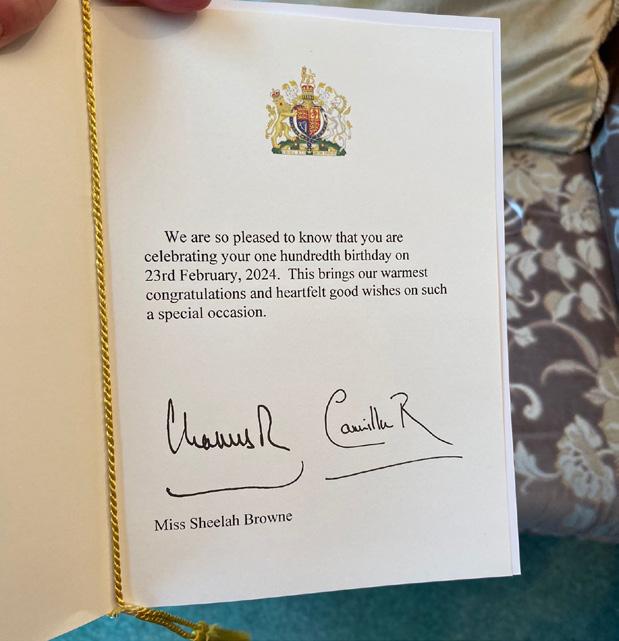 We are so pleased to know that you are
celebrating your one hundredth birthday on
23rd February, 2024. This brings our warmest
congratulations and heartfelt good wishes on such
a special occasion.
Charles R Camilla R
Miss Sheelah Browne